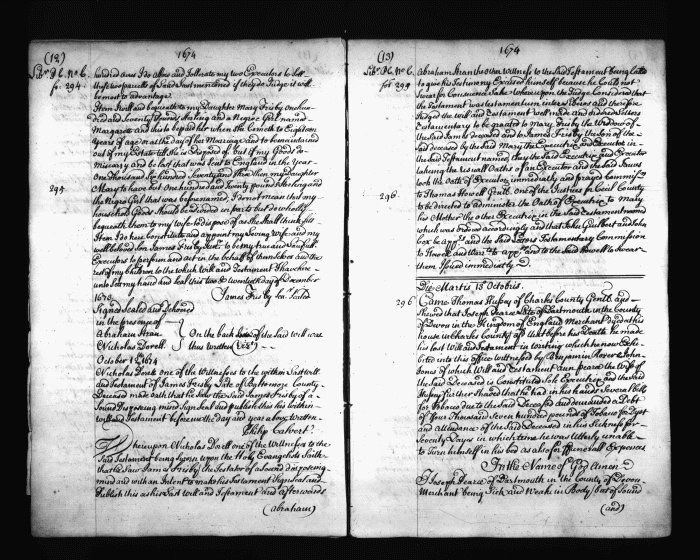 (12)
1674
Lib. H. C. No. 6.
fo: 294
hundred acres I do Allow and Tollerate my two Executors to Sell
these two parcells of Said Instrument and if they do Judge it will
be most to advantage
Item I will and bequeath to my Daughter Mary Frisby one hun
dred and Twenty Pounds Sterling and a Negroe Girl named
Margarett and this to be paid her when She Cometh to Eighteen
Years of age or at the day of her Marriage and to be maintained
out of my Estate till then Dispos'd of, but if my Goods do
Miscarry and be lost that was Sent to England in the Year
One thousand Six hundred Seventy and then my Daughter
295
Mary to have but One hundred and Twenty pounds Sterling and
the Negroe Girl that was before named, I do not mean that my
household Goods Should be divided in parts but do wholly
bequeath them to my Wife to dispose of as She Shall think fitt
Item I do here Constitute and appoint my Loving Wife and my
well beloved Son James Frisby to be my true and Lawfull
Executors to perform and act in the behalf of themselves and the
rest of my children to the which Will and Testament I have here
unto Set my hand and Seal this twentieth day of December
1673.
James Frisby Sen. Sealed
Signed Sealed and Delivered
in the presence of
Abraham Stran
Nicholas Dorell
On the back Side of the Said Will was
thus written (Viz.t)
October 12 1674
Nicholas Dorell one of the Witnesses to the within Last will
and Testament of James Frisby Late of Baltemore County
Deceased made oath that he Saw the Said James Frisby of a
Sound Disposeing mind Sign Seal and publish this his within
will and Testament before me the day and year above written
Philip Calvert
Thereupon Nicholas Dorell one of the Witnesses to the
Said Testament being Sworn upon the Holy Evangelists Saith
that he Saw James Frisby the Testator of a Sound disposeing
mind and with an Intent to make his Testament Sign Seal and
Publish this as his Last Will and Testament and afterwards
(abraham)
(13)
1674
Lib. H. C. No. 6.
fo: 295
Abraham Stran the other Witness to the Said Testament being Called
to give his Testimony Excused himself because he Could not
Swear for Conscience Sake whereupon the Judge Considered that
the Testament was testamentum inter Liberos and therefore
Judged the will and Testament well made and ordered Letters
Testamentary to be granted to Mary Frisby the Widdow of
the Said James deceased and to James Frisby the Son of the
said deceased by the Said Mary the Executrix and Executor in
the Said Testament named, they the Said Executrix and Executor
takeing the usuall Oaths of an Executor and the Said James
took the Oath of Executor immediately and prayed Commiss.n
296.
to Thomas Howell Gent. one of the Justices for Cecil County
to be directed to administer the Oath of Executrix to Mary
his Mother the other Executrix in the Said Testament named
which was ordered accordingly and that John Guilbert and John
Cox be and the Said Letters Testamentary Commission
to Howell and War.t to and to the Said Howell to Swear
them Issued immediately
Die Martis, 13 Octobris.
296
Came Thomas Hussey of Charles County Gent. and
Shewed that Joseph Pearce Late of Dartmouth in the County
of Devon in the Kingdom of England Merchant dyed at his
house in Charles County and that before his Death he made
his last Will and Testament in writing which he now Exhi
bited into this office witnessed by Benjamin Rozer and John
Jones of which Will and Testament Ann Pearce the Wife of
the Said Deceased is Constituted Sole Executrix and the Said
Hussey further Shewed that he had in his hands Several Bills
for Tobacco due to the Said Deceased and demanded a Debt
of Four Thousand Seven hundred pounds of Tobacco for Dyet
and Attendance of the Said Deceased in his Sickness for
Seventy Days in which time he was Utterly unable
to Turn himself in his bed as also for Funerall Expences
In the Name of God Amen
I Joseph Pearce of Dartmouth in the County of Devon
Merchant being Sick and Weak in Body but of Sound
(and)